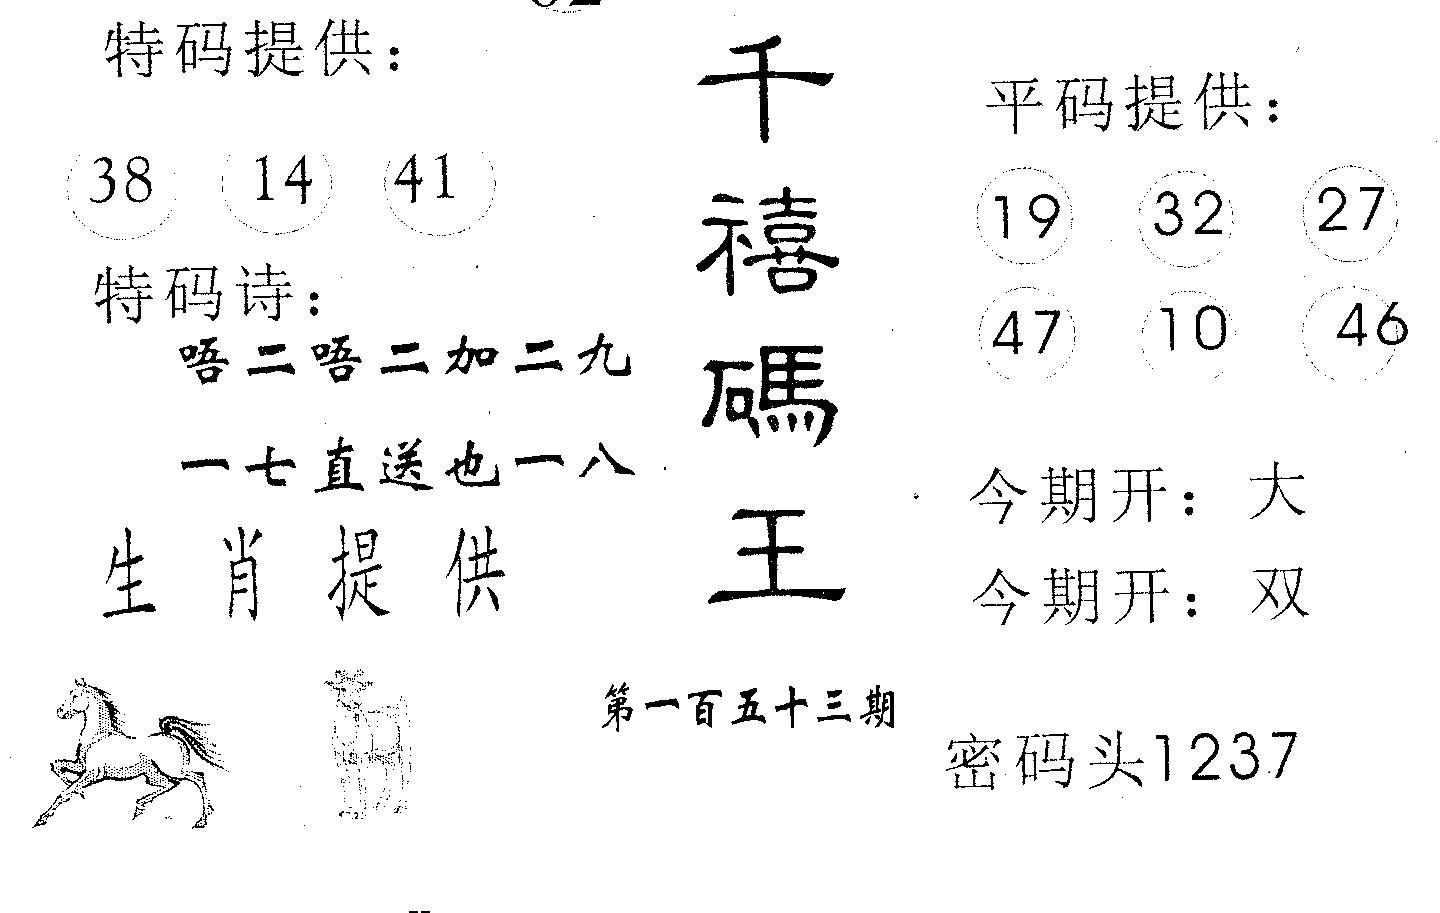 特码提供：
38 14 41
特码诗：
唔二唔二加二九
一七直送也一八
生肖提供
千禧碼王
第一百五十三期
平码提供：
19 32 27
47 10 46
今期开：大
今期开：双
密码头1237